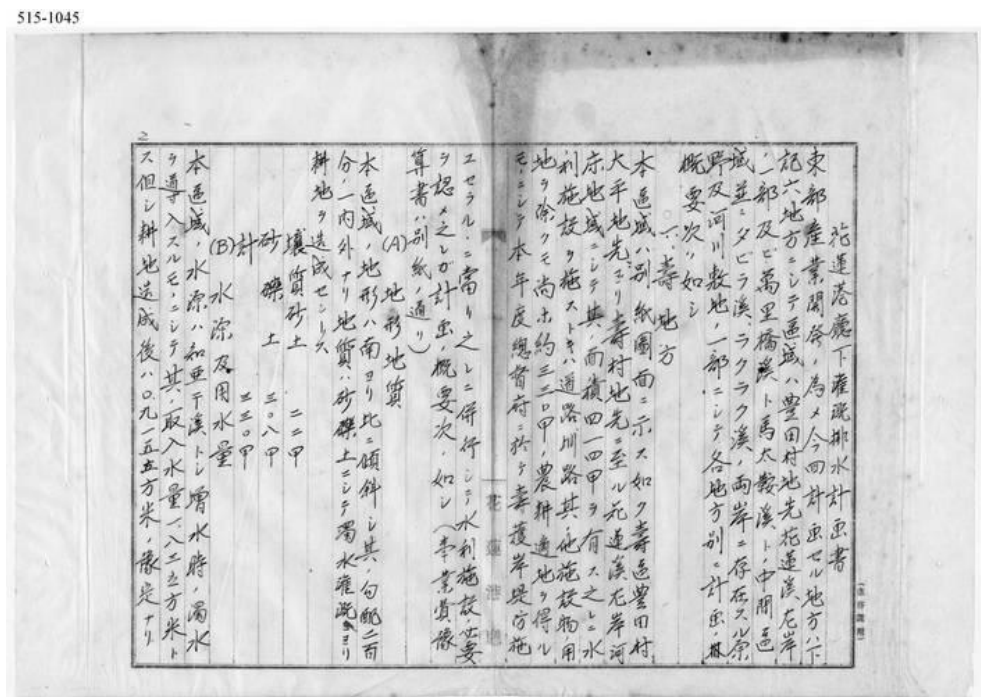 515-1045
花蓮港廳下灌漑排水計画書
東部産業開発ノ為メ今回計画セル地方ハ下
記六地方ニシテ區域ハ豊田村地先花蓮溪左岸
ノ一部及ビ萬里橋溪ト馬太鞍溪トノ中間區
域並ニタビラ溪、ラクラク溪ノ両岸ニ存在スル原
野及河川敷地ノ一部ニシテ各地方別ニ計画ノ
概要次ノ如シ
一、壽地方
本區域ハ別紙圖面ニ示ス如ク壽區豊田村
大平地先ヨリ壽村地先ニ至ル花蓮溪左岸河
床地域ニシテ其ノ面積四一四甲ヲ有ス之レニ水
利施設ヲ施ストキハ道路圳路其ノ他施設物ノ用
地ヲ除クモ尚ホ約三三〇甲ノ農耕適地ヲ得ル
モノニシテ本年度總督府ニ於テ壽護岸堤防施
工セラルヽニ當リ之レニ併行シテ水利施設ノ必要
ヲ認メ之レガ計画ノ概要次ノ如シ(事業費豫
算書ハ別紙ノ通リ)
(A) 地形地質
本區域ノ地形ハ南ヨリ北ニ傾斜シ其ノ勾配二百
分ノ一内外ナリ地質ハ砂礫土ニシテ濁水灌漑ヨリ
耕地ヲ造成セントス
壤質砂土 二二甲
砂礫土 三〇八甲
計 三三〇甲
(B) 水源及用水量
本區域ノ水源ハ知亜干溪トシ増水時ノ濁水
ヲ導入スルモノニシテ其ノ取入水量一、八二五方米ト
ス但シ耕地造成後ハ〇、九一五五方米ノ豫定ナリ
花蓮港廳